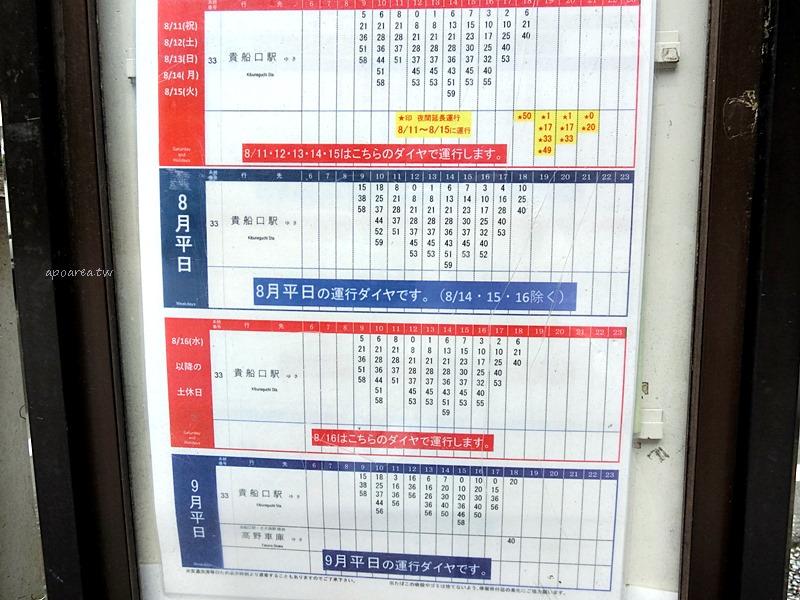 行 先 6 7 8 9 10 11 12 13 14 15 16 17 18 19 20 21 22 23
8/11(祝)
8/12(土)
8/13(日)
8/14(月)
8/15(火)
33 貴船口駅 ゆき
Kibuneguchi Sta.
5 6 8 0 1 6 7 3 2 6
21 21 21 8 8 13 15 10 10 21
36 28 28 21 21 21 23 17 25 40
51 36 37 28 28 28 30 25 40
58 44 51 37 37 36 38 32 53
51 45 45 43 45 40
58 53 53 51 53 55
59
★印 夜間延長運行
8/11～8/15に運行
★50 ★1 ★1 ★0
★17 ★17 ★20
★33 ★33
★49
Saturday
and
Holidays
8/11・12・13・14・15はこちらのダイヤで運行します。
系統
番号 行 先 6 7 8 9 10 11 12 13 14 15 16 17 18 19 20 21 22 23
8月平日
33 貴船口駅 ゆき
Kibuneguchi Sta.
15 18 8 0 1 6 7 3 4 10
38 25 21 8 8 13 14 10 16 25
58 37 28 21 21 21 23 17 28 40
44 37 28 28 28 30 25 40
52 51 37 37 36 37 32 53
59 45 45 43 45 40
53 53 51 53 52
59
Weekdays
8月平日の運行ダイヤです。(8/14・15・16除く)
系統
番号 行 先 6 7 8 9 10 11 12 13 14 15 16 17 18 19 20 21 22 23
8/16(水)
以降の
土休日
33 貴船口駅 ゆき
Kibuneguchi Sta.
5 6 8 0 1 6 7 3 2 6
21 21 21 8 8 13 15 10 10 21
36 28 28 21 21 21 23 17 25 40
51 36 37 28 28 28 30 25 40
58 44 51 37 37 36 37 32 53
51 45 45 43 45 40
58 53 53 51 53 55
59
Saturday
and
Holidays
8/16はこちらのダイヤで運行します。
系統
番号 行 先 6 7 8 9 10 11 12 13 14 15 16 17 18 19 20 21 22 23
9月平日
33 貴船口駅 ゆき
Kibuneguchi Sta.
15 18 3 16 6 7 0 10 0 20
38 25 16 36 16 20 10 20 15
58 37 36 56 36 20 30 36
44 56 56 50 36 40 56
56 46 50
58
高野車庫 ゆき
40
9月平日の運行ダイヤです。
apoarea.tw